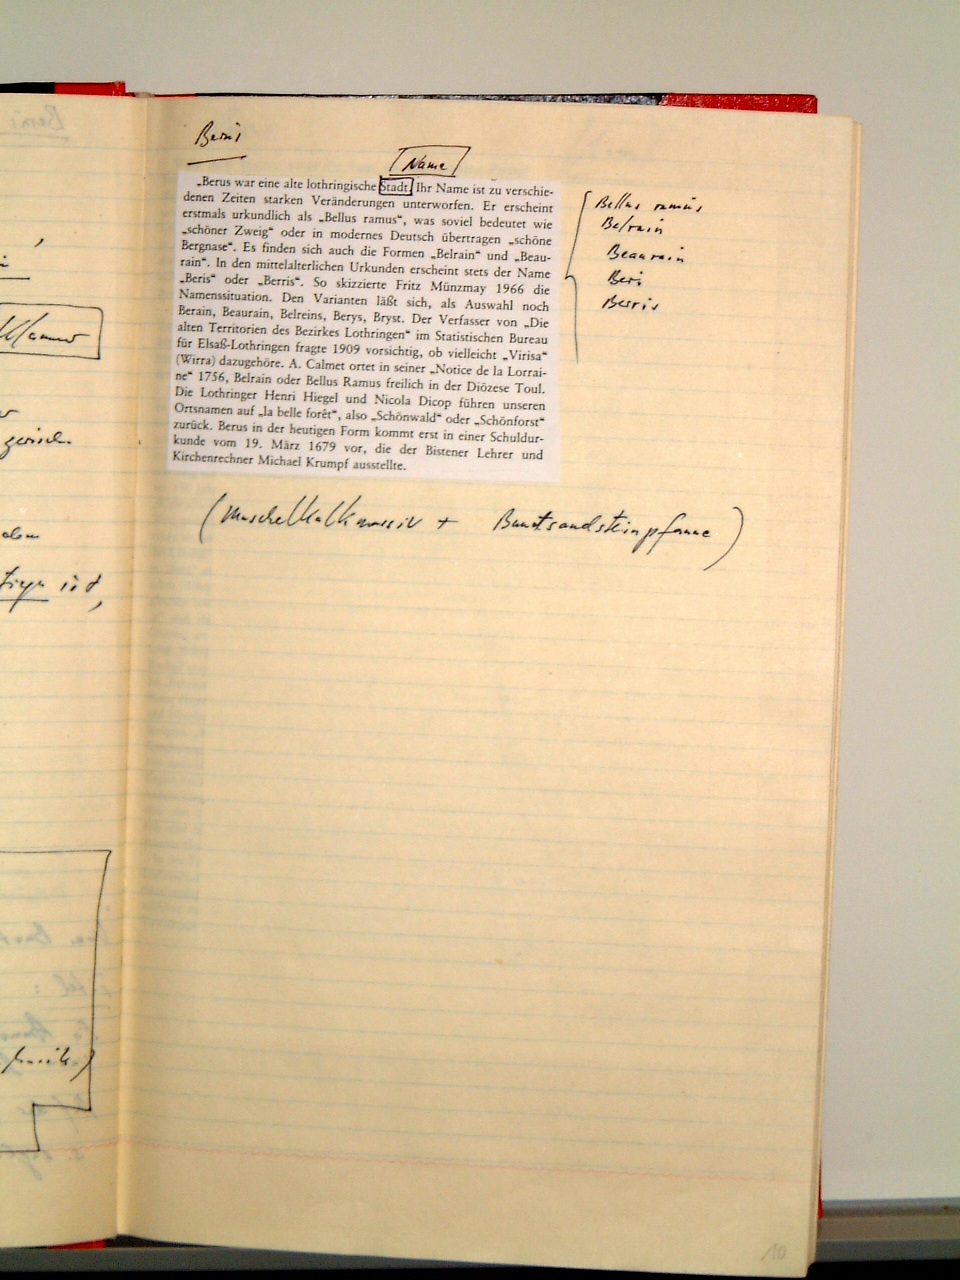 Berus
Name
„Berus war eine alte lothringische Stadt. Ihr Name ist zu verschie-
denen Zeiten starken Veränderungen unterworfen. Er erscheint
erstmals urkundlich als „Bellus ramus“, was soviel bedeutet wie
„schöner Zweig“ oder in modernes Deutsch übertragen „schöne
Bergnase“. Es finden sich auch die Formen „Belrain“ und „Beau-
rain“. In den mittelalterlichen Urkunden erscheint stets der Name
„Beris“ oder „Berris“. So skizzierte Fritz Münzmay 1966 die
Namenssituation. Den Varianten läßt sich, als Auswahl noch
Berain, Beaurain, Belreins, Berys, Bryst. Der Verfasser von „Die
alten Territorien des Bezirkes Lothringen“ im Statistischen Bureau
für Elsaß-Lothringen fragte 1909 vorsichtig, ob vielleicht „Virisa“
(Wirra) dazugehöre. A. Calmet ortet in seiner „Notice de la Lorrai-
ne“ 1756, Belrain oder Bellus Ramus freilich in der Diözese Toul.
Die Lothringer Henri Hiegel und Nicola Dicop führen unseren
Ortsnamen auf „la belle forêt“, also „Schönwald“ oder „Schönforst“
zurück. Berus in der heutigen Form kommt erst in einer Schuldur-
kunde vom 19. März 1679 vor, die der Bistener Lehrer und
Kirchenrechner Michael Krumpf ausstellte.
Bellus ramus
Belrain
Beaurain
Beris
Berris
(Muschelkalkmassiv + Buntsandsteinpfanne)
ist,
10